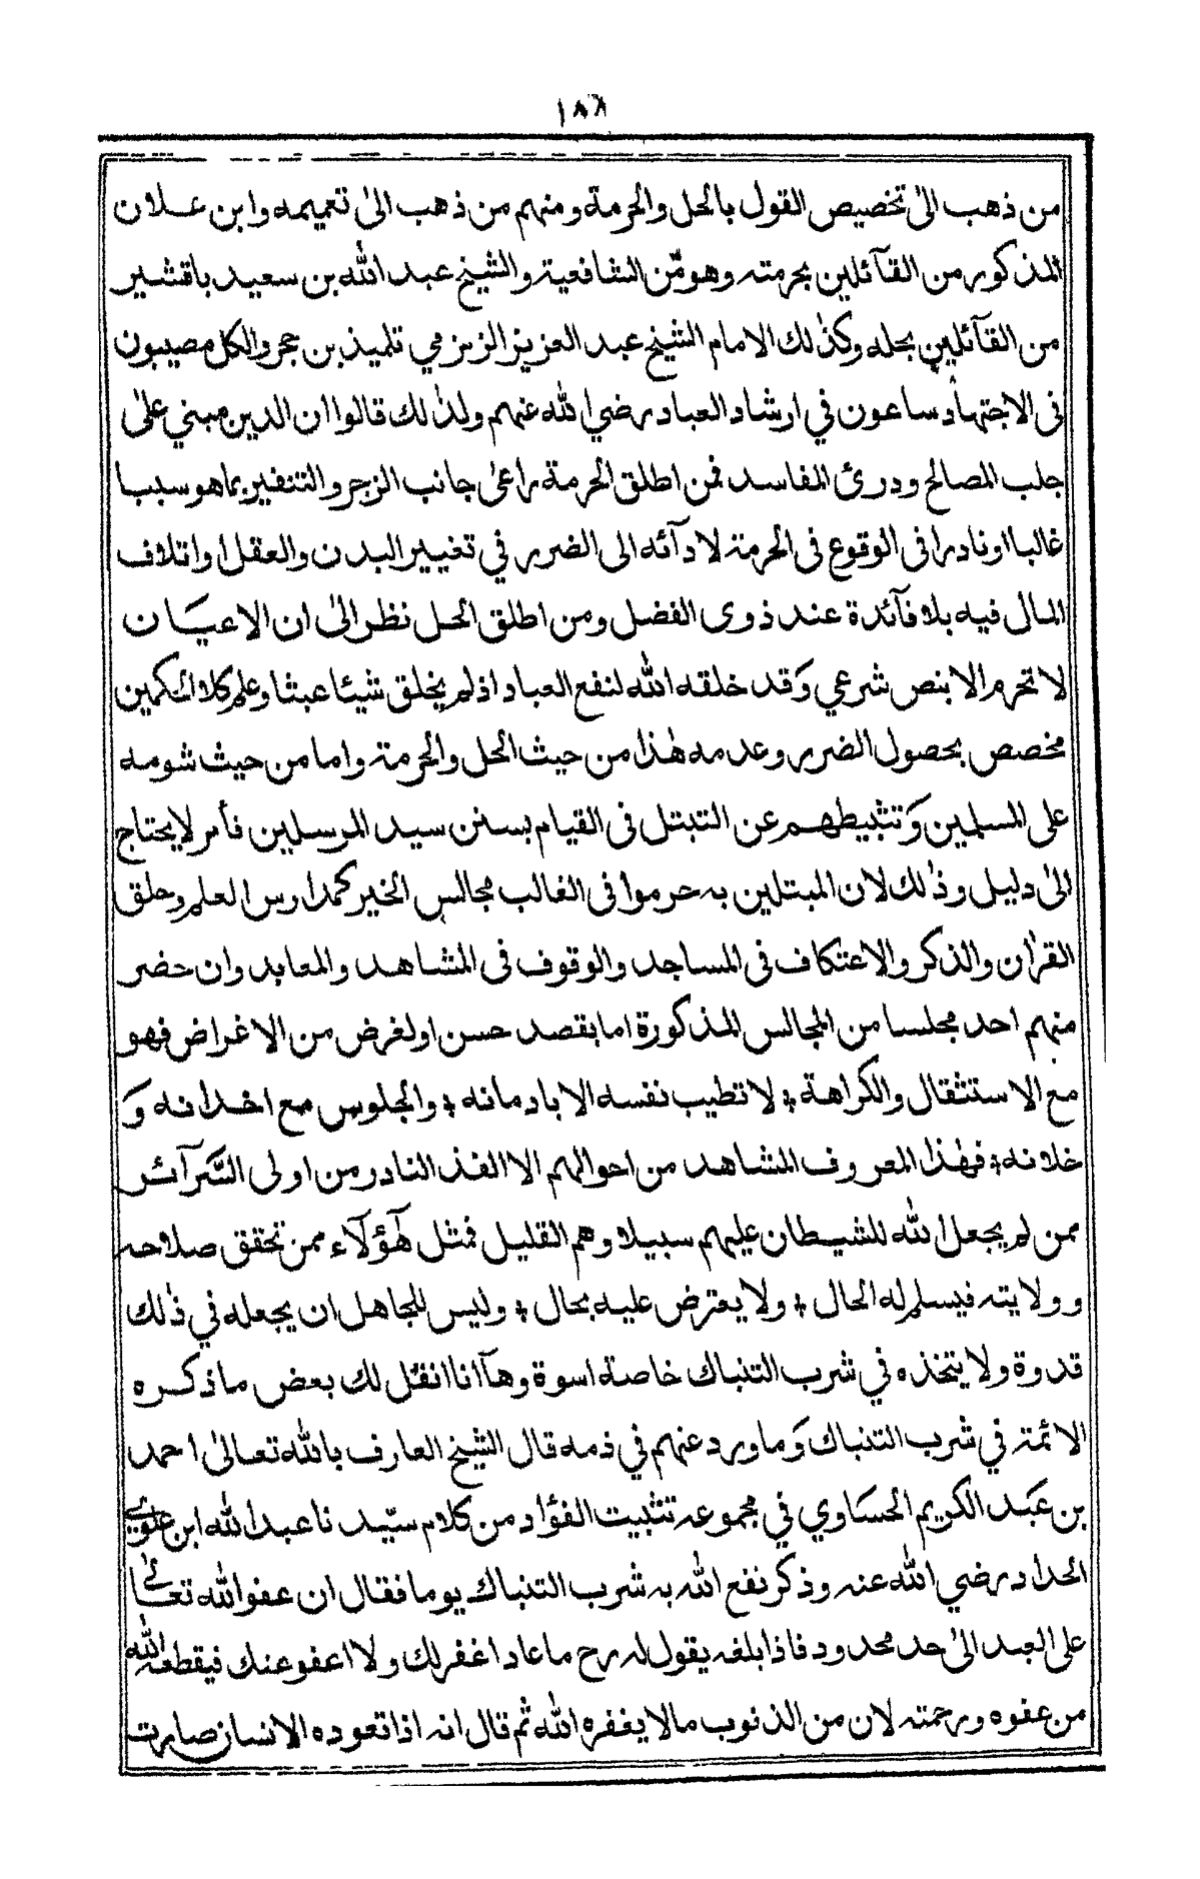 ١٨٦
من ذهب الىٰ تخصيص القول بالحل والحرمة ومنهم من ذهب الىٰ تعميمه وابن علان
المذكور من القآئلين بحرمته وهو مّن الشافعية والشيخ عبد الله بن سعيد باقشير
من القآئلين بحله وكذٰلك الامام الشيخ عبد العزيز الزمزمي تلميذ بن حجر والكل مصيبون
فى الاجتهاد ساعون في ارشاد العباد رضي الله عنهم ولذٰلك قالوا ان الدين مبني علىٰ
جلب المصالح ودرئ المفاسد فمن اطلق الحرمة راعىٰ جانب الزجر والتنفير بما هو سببا
غالبا او نادرا فى الوقوع فى الحرمة لادآئه الى الضرر في تغيير البدن والعقل او اتلاف
المال فيه بلا فآئدة عند ذوى الفضل ومن اطلق الحل نظر الىٰ ان الاعيَان
لا تحرم الا بنص شرعي وَقد خلقه الله لنفع العباد اذ لم يخلق شيئا عبثا وعلم كلا الحكمين
مخصص بحصول الضرر وعدمه هٰذا من حيث الحل والحرمة واما من حيث شومه
على المسلمين وَتثبيطهم عن التبتل فى القيام بسنن سيد المرسلين فأمر لا يحتاج
الىٰ دليل وذٰلك لان المبتلين به حرموا فى الغالب مجالس الخير كمدارس العلم وحلق
القرٰان والذكر والاعتكاف فى المساجد والوقوف فى المشاهد والمعابد وان حضر
منهم احد مجلسا من المجالس المذكورة اما بقصد حسن او لغرض من الاغراض فهو
مع الاستثقال والكراهة ؛ لا تطيب نفسه الا بادمانه ؛ والجلوس مع اخدانه وَ
خلانه ؛ فهٰذا المعروف المشاهد من احوالهم الا الفذ النادر من اولى السَّرآئر
ممن لم يجعل الله للشيطان عليهم سبيلا وهم القليل فمثل هٰٓؤلآء ممن تحقق صلاحه
وولايته فيسلم له الحال ؛ ولا يعترض عليه بحال ؛ وليس للجاهل ان يجعله في ذٰلك
قدوة ولا يتخذه في شرب التنباك خاصة اسوة وهآ انا انقل لك بعض ما ذكره
الائمة في شرب التنباك وَما ورد عنهم في ذمه قال الشيخ العارف بالله تعالىٰ احمد
بن عبَد الكريم الحسَاوي في مجموعه تثبيت الفؤاد من كلام سيّدنا عبد الله ابن علوي
الحداد رضي الله عنه وذكر نفع الله به شرب التنباك يوما فقال ان عفو الله تعالىٰ
على العبد الىٰ حد محدود فاذا بلغه يقول له رح ما عاد اغفر لك ولا اعفو عنك فيقطعه الله
من عفوه ورحمته لان من الذنوب ما لا يغفره الله ثم قال انه اذا تعوده الانسان صارت